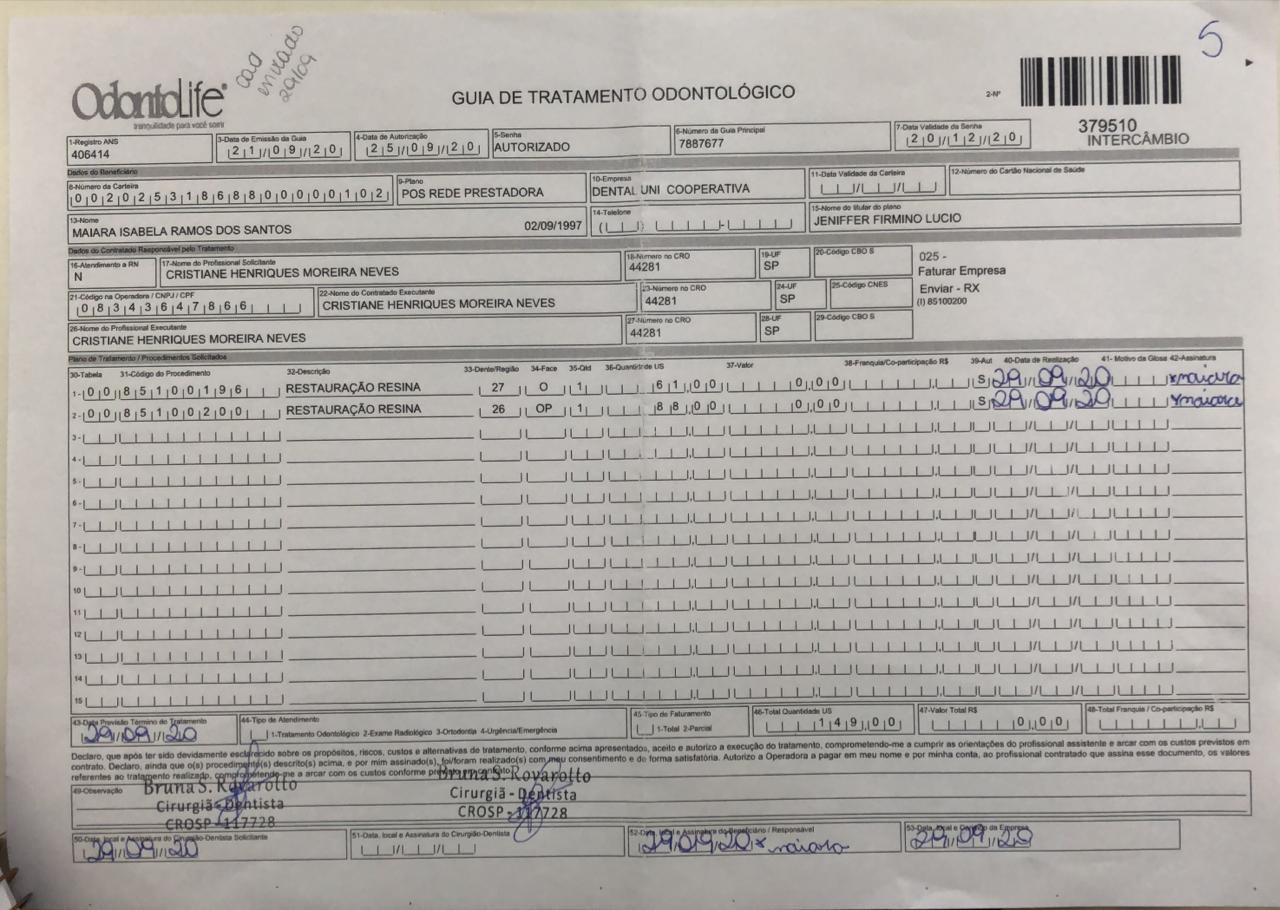 5
cad
enviado
29/09
OdontoLife
tranquilidade para você sorrir
GUIA DE TRATAMENTO ODONTOLÓGICO
2-Nº
379510
INTERCÂMBIO
1-Registro ANS
406414
3-Data de Emissão da Guia
21/09/20
4-Data de Autorização
25/09/20
5-Senha
AUTORIZADO
6-Número da Guia Principal
7887677
7-Data Validade da Senha
20/12/20
Dados do Beneficiário
8-Número da Carteira
00202531868800000102
9-Plano
POS REDE PRESTADORA
10-Empresa
DENTAL UNI COOPERATIVA
11-Data Validade da Carteira
12-Número do Cartão Nacional de Saúde
13-Nome
MAIARA ISABELA RAMOS DOS SANTOS 02/09/1997
14-Telefone
15-Nome do titular do plano
JENIFFER FIRMINO LUCIO
Dados do Contratado Responsável pelo Tratamento
16-Atendimento a RN
N
17-Nome do Profissional Solicitante
CRISTIANE HENRIQUES MOREIRA NEVES
18-Número no CRO
44281
19-UF
SP
20-Código CBO S
025 -
Faturar Empresa
Enviar - RX
(I) 85100200
21-Código na Operadora / CNPJ / CPF
08343647866
22-Nome do Contratado Executante
CRISTIANE HENRIQUES MOREIRA NEVES
23-Número no CRO
44281
24-UF
SP
25-Código CNES
26-Nome do Profissional Executante
CRISTIANE HENRIQUES MOREIRA NEVES
27-Número no CRO
44281
28-UF
SP
29-Código CBO S
Plano de Tratamento / Procedimentos Solicitados
30-Tabela 31-Código do Procedimento 32-Descrição 33-Dente/Região 34-Face 35-Qtd 36-Quantidade US 37-Valor 38-Franquia/Co-participação R$ 39-Aut 40-Data de Realização 41- Motivo da Glosa 42-Assinatura
1- 00 85100196 RESTAURAÇÃO RESINA 27 O 1 61,00 0,00 S 29/09/20 x maiara
2- 00 85100200 RESTAURAÇÃO RESINA 26 OP 1 88,00 0,00 S 29/09/20 x maiara
3-
4-
5-
6-
7-
8-
9-
10
11
12
13
14
15
43-Data Previsão Término do Tratamento
29/09/20
44-Tipo de Atendimento
1-Tratamento Odontológico 2-Exame Radiológico 3-Ortodontia 4-Urgência/Emergência
45-Tipo de Faturamento
1-Total 2-Parcial
46-Total Quantidade US
149,00
47-Valor Total R$
0,00
48-Total Franquia / Co-participação R$
Declaro, que após ter sido devidamente esclarecido sobre os propósitos, riscos, custos e alternativas de tratamento, conforme acima apresentados, aceito e autorizo a execução do tratamento, comprometendo-me a cumprir as orientações do profissional assistente e arcar com os custos previstos em
contrato. Declaro, ainda que o(s) procedimento(s) descrito(s) acima, e por mim assinado(s), foi/foram realizado(s) com meu consentimento e de forma satisfatória. Autorizo a Operadora a pagar em meu nome e por minha conta, ao profissional contratado que assina esse documento, os valores
referentes ao tratamento realizado, comprometendo-me a arcar com os custos conforme previsto em contrato.
49-Observação
Bruna S. Rovarotto
Cirurgiã - Dentista
CROSP - 117728
Bruna S. Rovarotto
Cirurgiã - Dentista
CROSP - 117728
50-Data, local e Assinatura do Cirurgião-Dentista Solicitante
29/09/20
51-Data, local e Assinatura do Cirurgião-Dentista
52-Data, local e Assinatura do Beneficiário / Responsável
29/09/20 x maiara
53-Data, local e Carimbo da Empresa
29/09/20